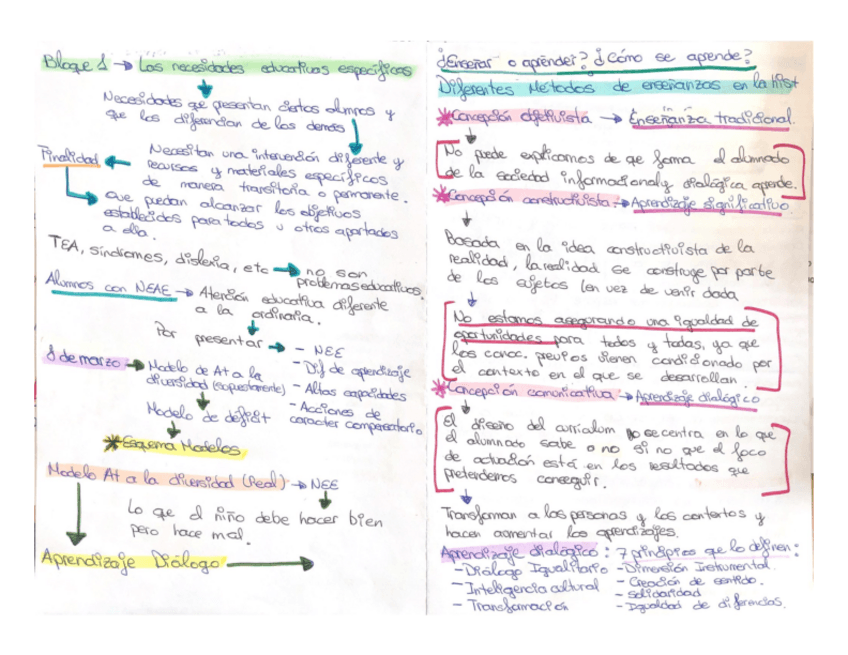 Bloque 1 → Las necesidades educativas específicas
Necesidades qe presentan ciertos alumnos y
que los diferencian de los demás
Finalidad
Necesitan una intervención diferente y
recursos y materiales específicos
de manera transitoria o permanente.
Que puedan alcanzar los objetivos
establecidos para todos u otros apartados
a ella.
TEA, síndromes, dislexia, etc → no son
problemas educativos.
Alumnos con NEAE → Atención educativa diferente
a la ordinaria.
Por presentar → - NEE
- Dif de aprendizaje
- Altas capacidades
- Acciones de
caracter compensatorio
8 de marzo → Modelo de At a la
diversidad (supuestamente)
Modelo de déficit
* Esquema Modelos
Modelo At a la diversidad (real) → NEE
Lo que el niño debe hacer bien
pero hace mal.
Aprendizaje Diálogo →
¿Enseñar o aprender? ¿Cómo se aprende?
Diferentes Métodos de enseñanzas en la Hist
* Concepción objetivista → Enseñanza tradicional.
No puede explicarnos de qe forma el alumnado
de la sociedad informacional y dialógica aprende.
* Concepción constructivista → Aprendizaje significativo.
Basada en la idea constructivista de la
realidad, la realidad se construye por parte
de los sujetos (en vez de venir dada
No estamos asegurando una igualdad de
oportunidades para todos y todas, ya que
los conoc. previos vienen condicionado por
el contexto en el que se desarrollan.
* Concepción comunicativa → Aprendizaje dialógico
El diseño del curriculum no se centra en lo que
el alumnado sabe o no si no que el foco
de actuación está en los resultados que
pretendemos conseguir.
Transforman a las personas y los contextos y
hacen aumentar los aprendizajes.
Aprendizaje dialógico: 7 principios que lo definen:
- Diálogo Igualitario
- Inteligencia cultural
- Transformación
- Dimensión Instrumental.
- Creación de sentido.
- Solidaridad
- Igualdad de diferencias.